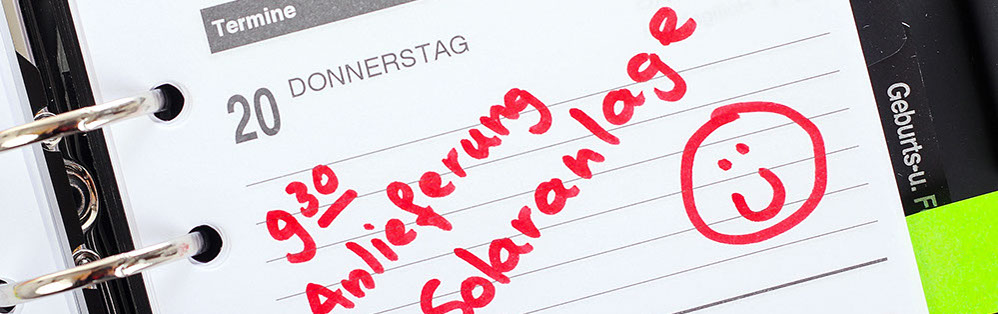 Termine
20 DONNERSTAG
9 30
Anlieferung
Solaranlage
Geburts-u. F